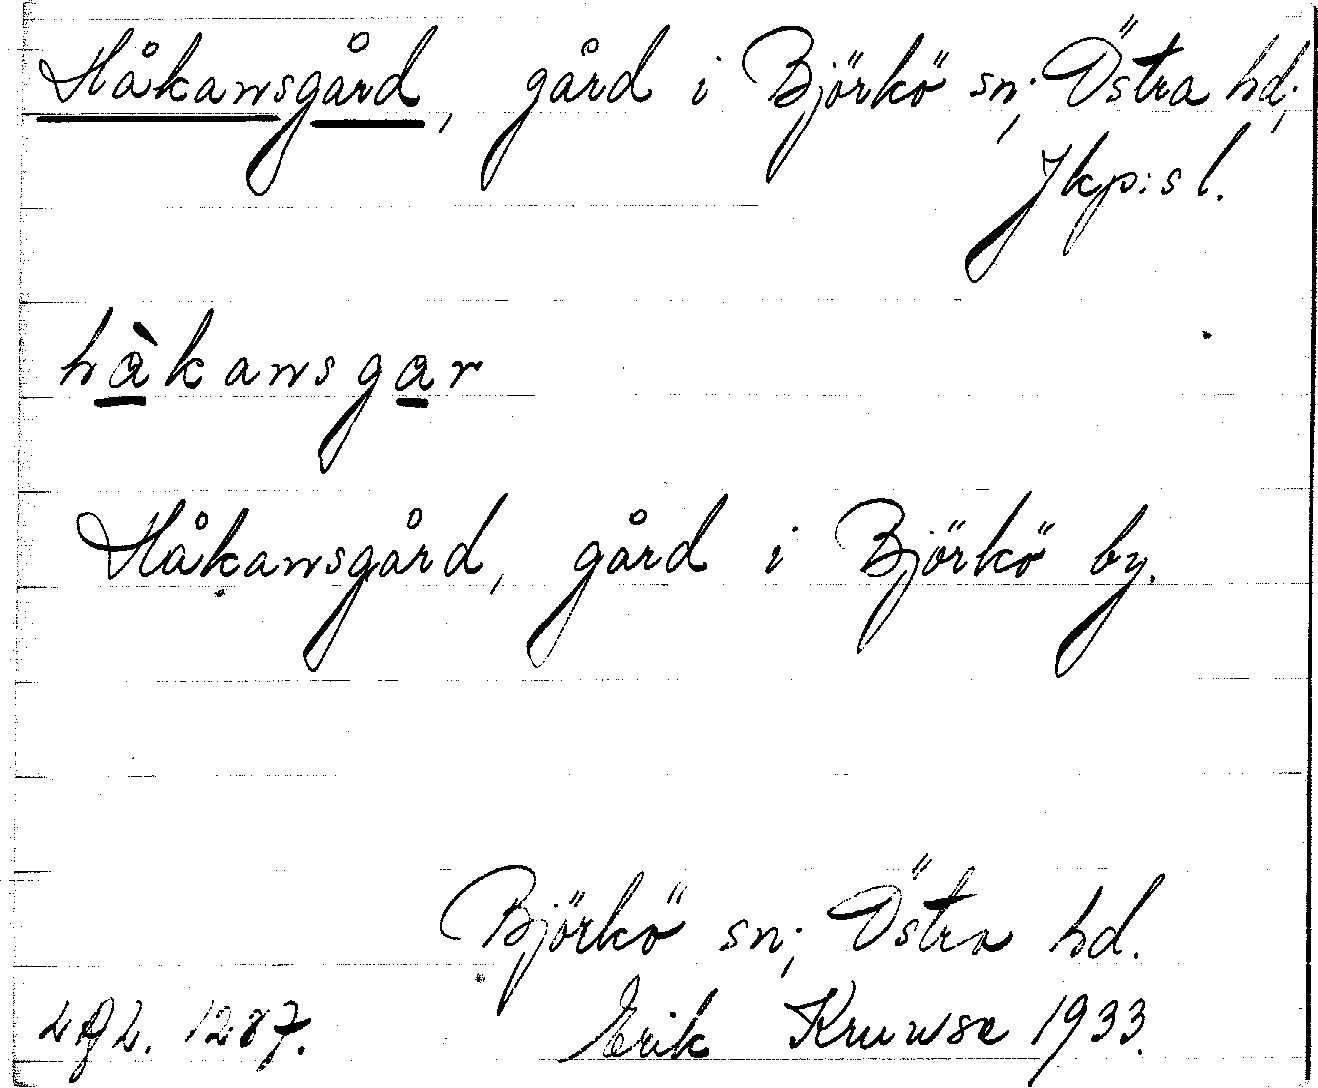 Håkansgård, gård i Björkö sn; Östra hd;
Jkp:s l.
hàkansgar
Håkansgård, gård i Björkö by.
Björkö sn; Östra hd.
1287. Erik Kruuse 1933.